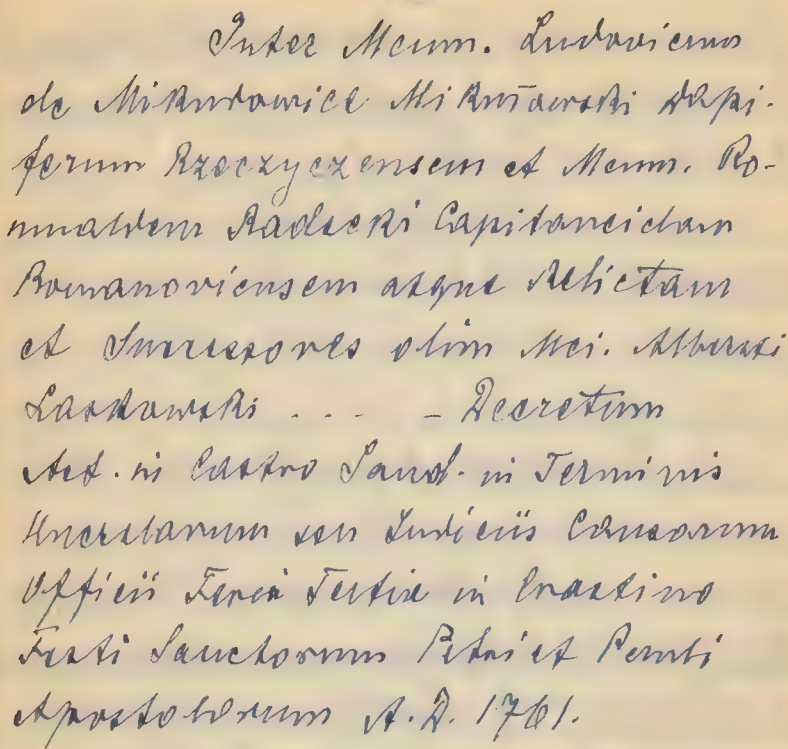 Inter Mcum. Ludovicum
de Mikułowice Mikułowski Dapi-
ferum Rzeczyczensem et Mcum. Ro-
mualdem Radecki Capitaneidam
Romanoviensem atque Relictam
et Successores olim Mci. Alberti
Laskowski . . . - Decretum
Act. in Castro Sand. in Terminis
Querelarum seu Iudiciis Causarum
Officii Feria Tertia in Crastino
Festi Sanctorum Petri et Pauli
Apostolorum A.D. 1761.